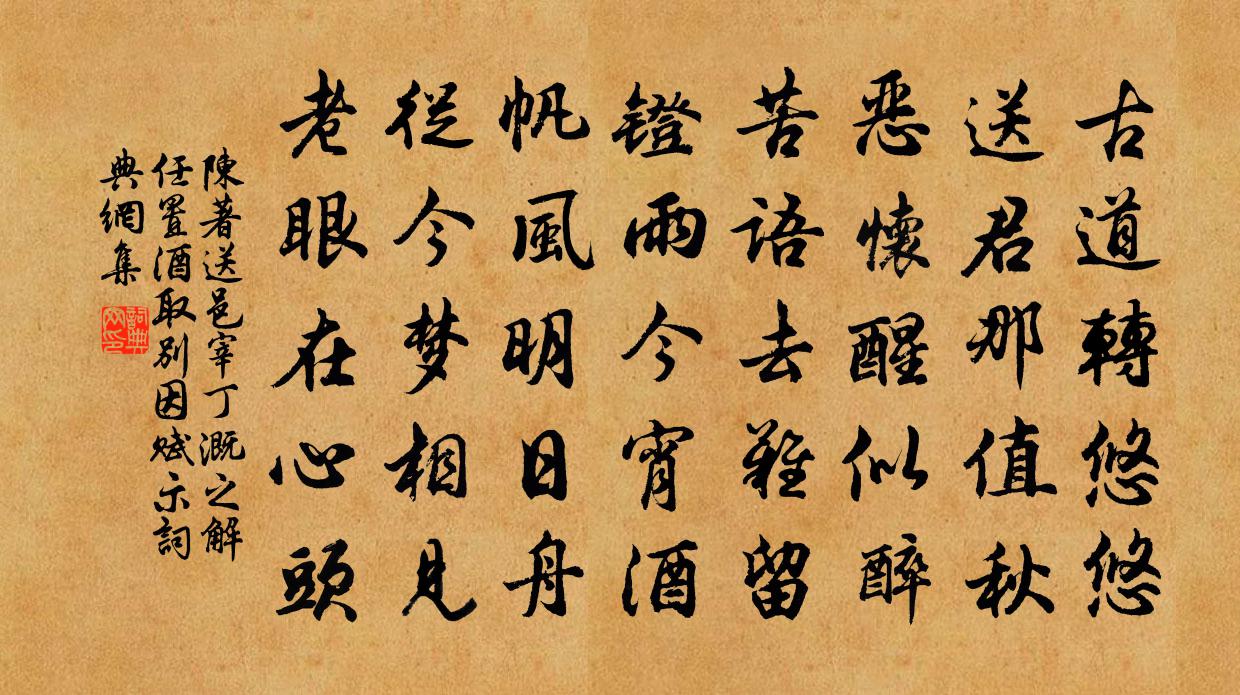 古道轉悠悠
送君那值秋
恶懷醒似醉
苦語去難留
鐙雨今宵酒
帆風明日舟
從今梦相見
老眼在心頭
陳著送邑宰丁溉之解
任置酒取别因赋示詞
典網集
詞典网印